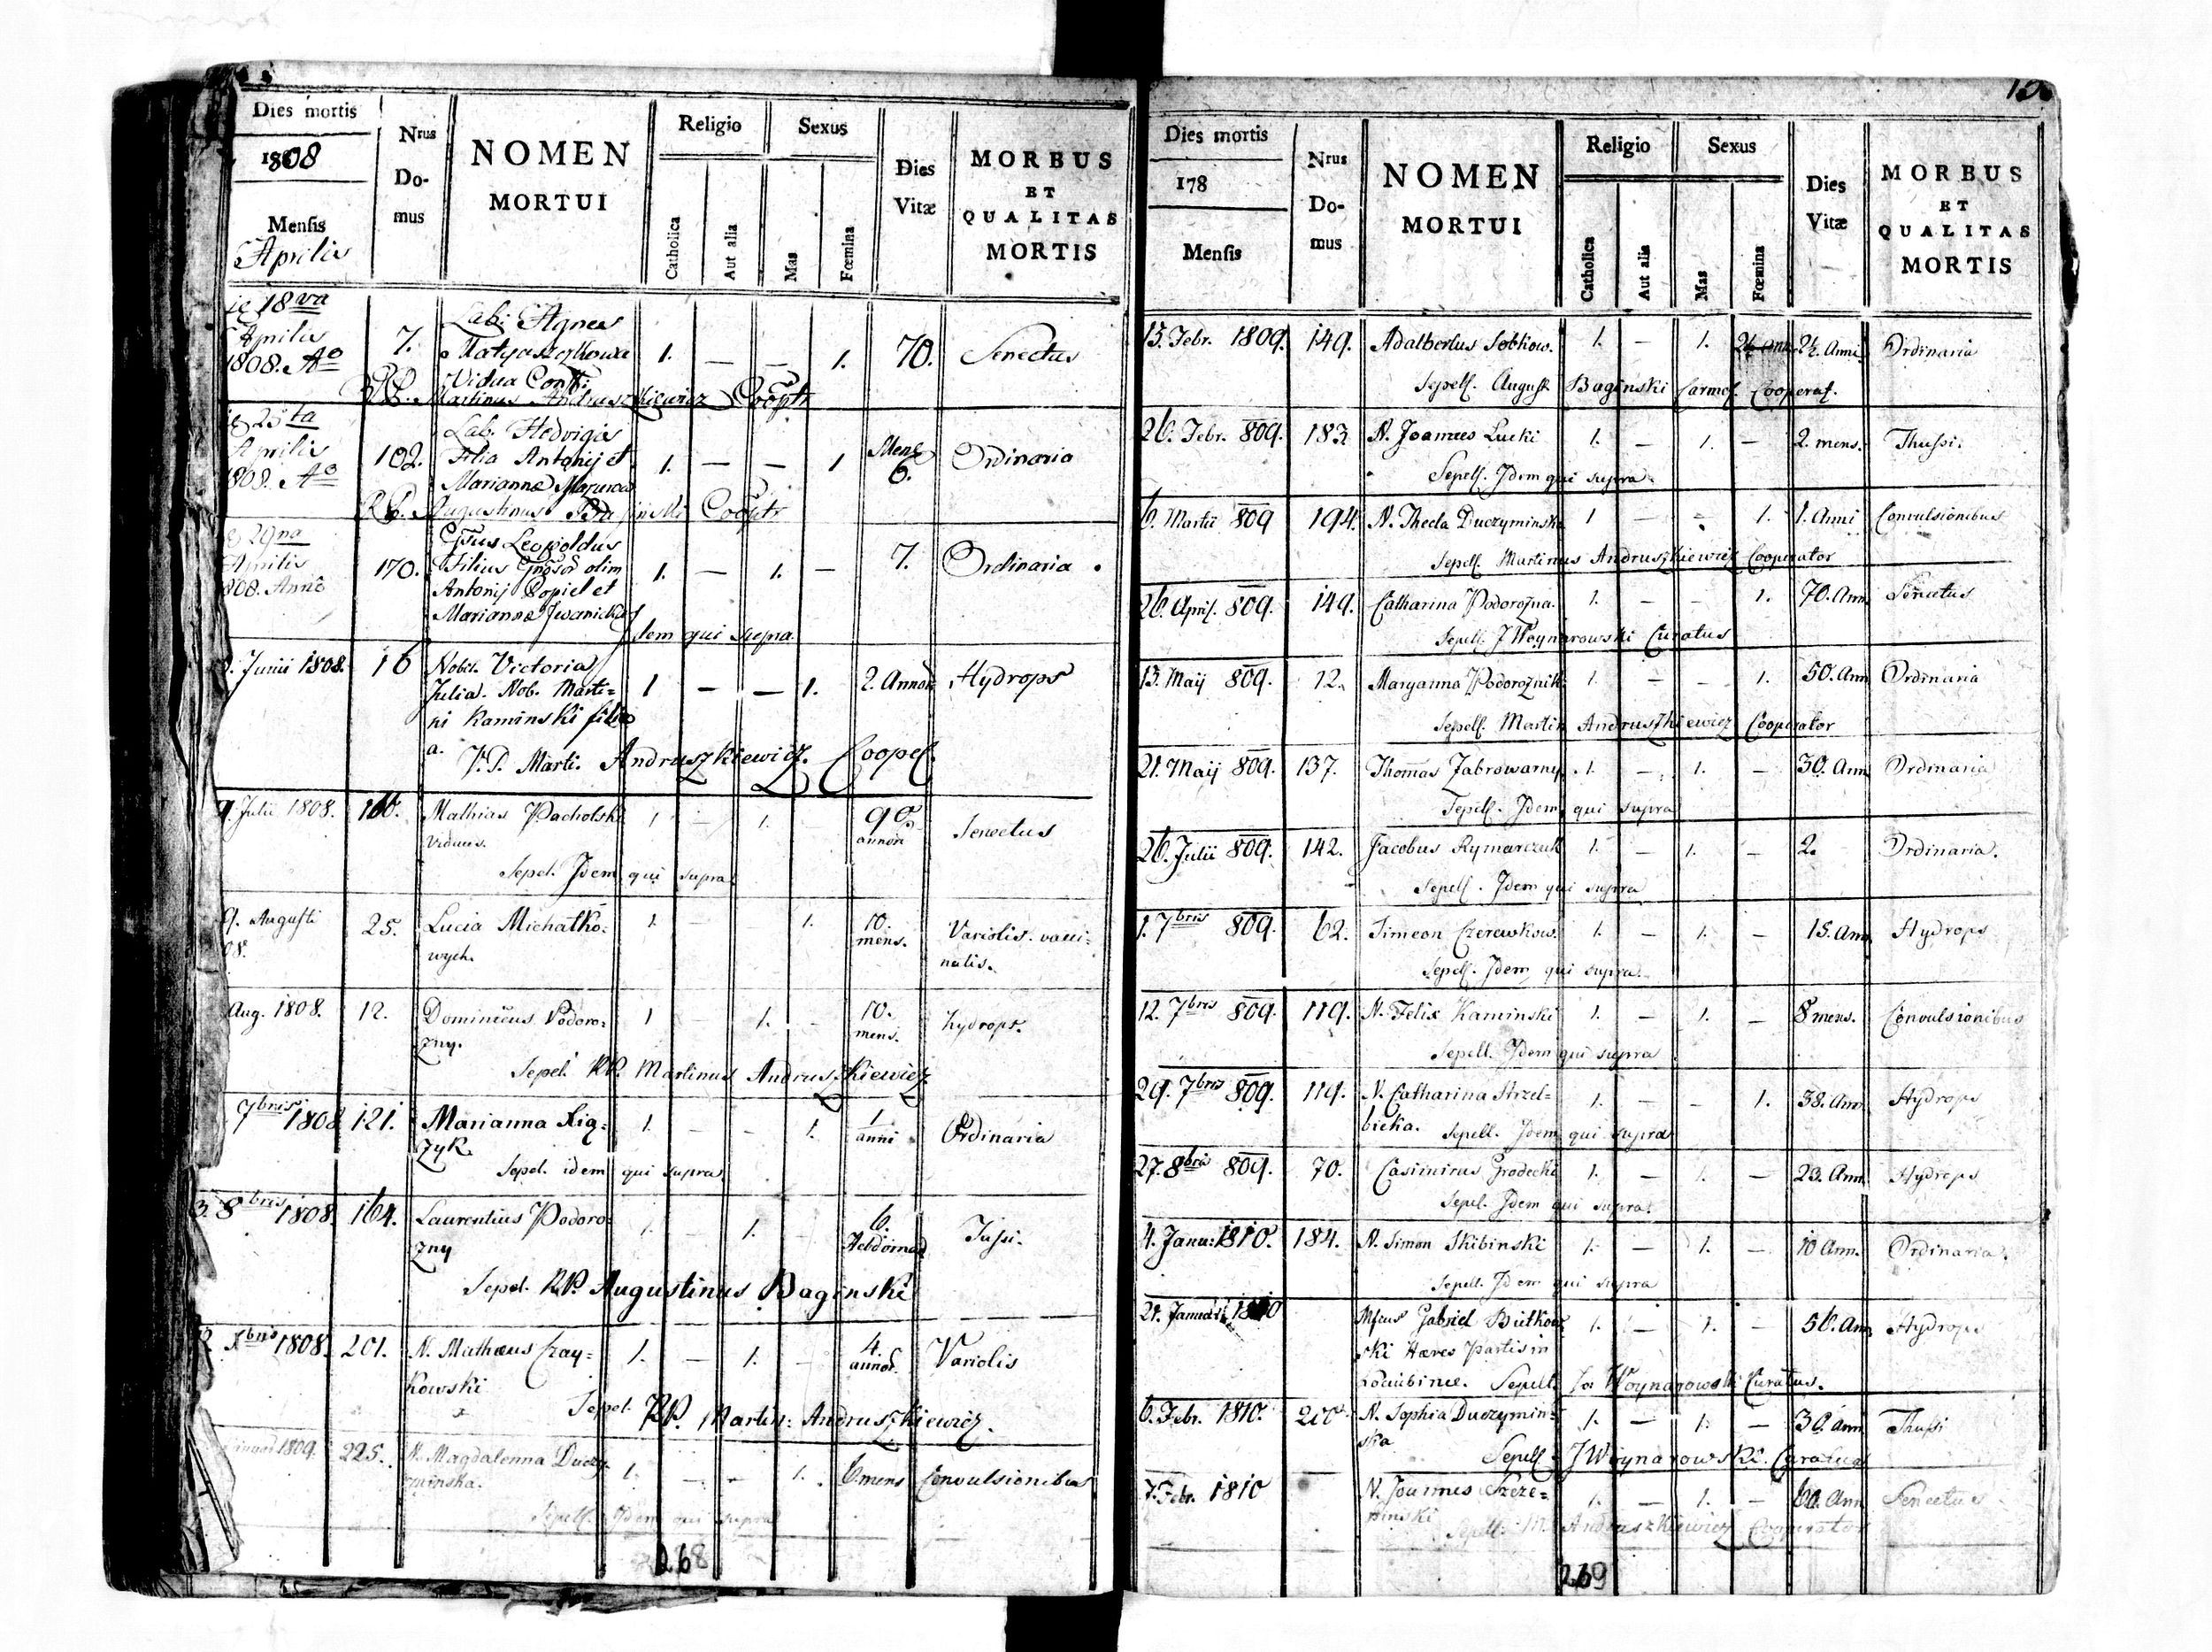 Dies mortis
1808
Mensis
Aprilis
Nrus
Do-
mus
NOMEN
MORTUI
Religio
Catholica
Aut alia
Sexus
Mas
Fœmina
Dies
Vitæ
MORBUS
ET
QUALITAS
MORTIS
18va Aprilis 1808. Ao 7. Lab: Agnes
Vidua 1. — — 1. 70. Senectus
RP. Martinus Andruszkiewicz Cooptr
Aprilis 1808. Ao 102. Lab. Hedvigis
Filia Antonij et
Marianna 1. — — 1 Mens 6. Ordinaria
RP. Augustinus Baginski Cooptr
29na Aprilis 808. Anno 170. Leopoldus
Filius olim
Antonij Popiel et
Mariannæ Iwanicka 1. — 1. — 7. Ordinaria.
Idem qui supra
Junii 1808. 16 Nobil. Victoria
Julia. Nob. Marti=
ni Kaminski filia
1 — — 1. 2. Annor Hydrops
V.P. Marti. Andruszkiewicz. Coope.
9. Julii 1808. 160. Mathias Pacholski
viduus. 1 — 1. 90. annor Senectus
Sepel. Idem qui supra
Augusti 08. 25. Lucia Michałko-
wych. 1. — — 1. 10. mens. Variolis
Aug. 1808. 12. Dominicus Podoro-
zny. 1 — 1. — 10. mens. hydrops.
Sepel. RP. Martinus Andruszkiewicz
7bris 1808 121. Marianna
1. — — 1. 1 anni Ordinaria
Sepel. idem qui supra
3. 8bris 1808. 164. Laurentius Podoro-
zny 1. — 1. — 6. Hebdomad Tussi.
Sepel. RP. Augustinus Baginski
Xbris 1808. 201. N. Mathæus Czay=
kowski 1. — 1. — 4. annor. Variolis
Sepel. RP. Martin: Andruszkiewicz.
1809. 225. N. Magdalenna Duczy-
minska. 1. — — 1. 6 mens Convulsionibus
Sepel. Idem qui supra
268
Dies mortis
178
Mensis
Nrus
Do-
mus
NOMEN
MORTUI
Religio
Catholica
Aut alia
Sexus
Mas
Fœmina
Dies
Vitæ
MORBUS
ET
QUALITAS
MORTIS
13. Febr. 1809. 149. Adalbertus Sobkow. 1. — 1. 2½. Anni Ordinaria
Sepel. August Baginski Carmel. Cooperat.
26. Febr. 809. 183 N. Joannes Lucki 1. — 1. — 2. mens. Thussi.
Sepel. Idem qui supra.
6. Martii 809 194. N. Thecla Duczyminska 1 — — 1. 1. Anni Convulsionibus
Sepel. Martinus Andruszkiewicz Cooperator
26 April. 809. 149. Catharina Podorożna. 1. — — 1. 70. Ann. Senectus
Sepel. J Woynarowski Curatus
13. Maij 809. 12. Maryanna Podorożnik 1. — — 1. 50. Ann Ordinaria
Sepel. Martin Andruszkiewicz Cooperator
21. Maij 809. 137. Thomas Zabrowarny. 1. — 1. — 30. Ann Ordinaria
Sepel. Idem qui supra
26. Julii 809. 142. Jacobus Rymarczuk 1. — 1. — 2. Ordinaria.
Sepel. Idem qui supra
1. 7bris 809. 62. Simeon Czerewkow. 1. — 1. — 15. Ann Hydrops
Sepel. Idem qui supra.
12. 7bris 809. 119. N. Felix Kaminski 1. — 1. — 8 mens. Convulsionibus
Sepell. Idem qui supra
29. 7bris 809. 119. N. Catharina Strzel-
bicka. 1. — — 1. 38. Ann Hydrops
Sepell. Idem qui supra
27. 8bris 809. 70. Casimirus Grodecki 1. — 1. — 23. Ann. Hydrops
Sepel. Idem qui supra.
4. Janu: 1810. 184. N. Simon Skibinski 1. — 1. — 10 Ann. Ordinaria.
Sepell. Idem qui supra
21. Januarii 1810 Gabriel Butkow
ski Hæres Partis in
1. — 1. — 56. Ann Hydrops
Sepell. Jos Woynarowski Curatus.
6. Febr. 1810. N. Sophia Duczymin=
ska 1. — 1. — 30. Ann Thussi
Sepell J Woynarowski. Curatus
7. Febr. 1810 N. Joannes
1. — 1. — 60. Ann Senectus
Sepell. M. Andruszkiewicz Cooperator
269